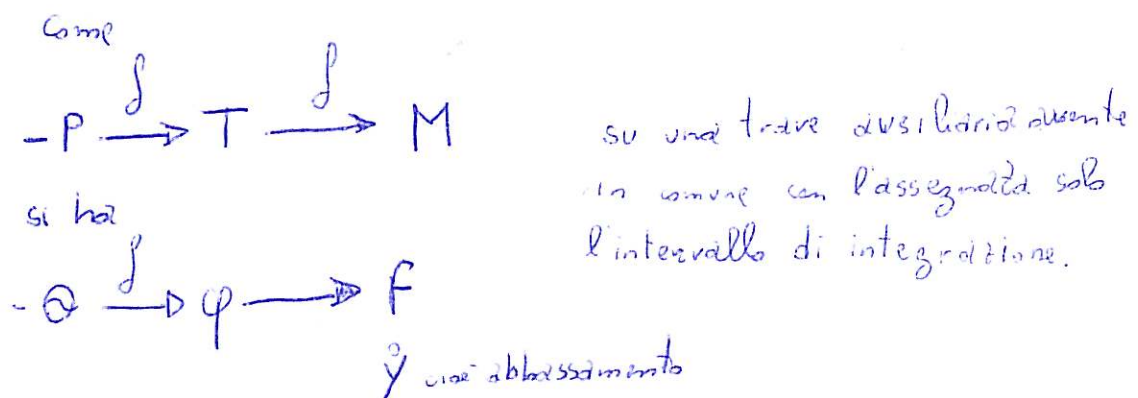 come
-P ∫→ T ∫→ M
si ha
-Q ∫→ φ → f
y cioè abbassamento
su una trave ausiliaria avente
in comune con l'assegnata solo
l'intervallo di integrazione.